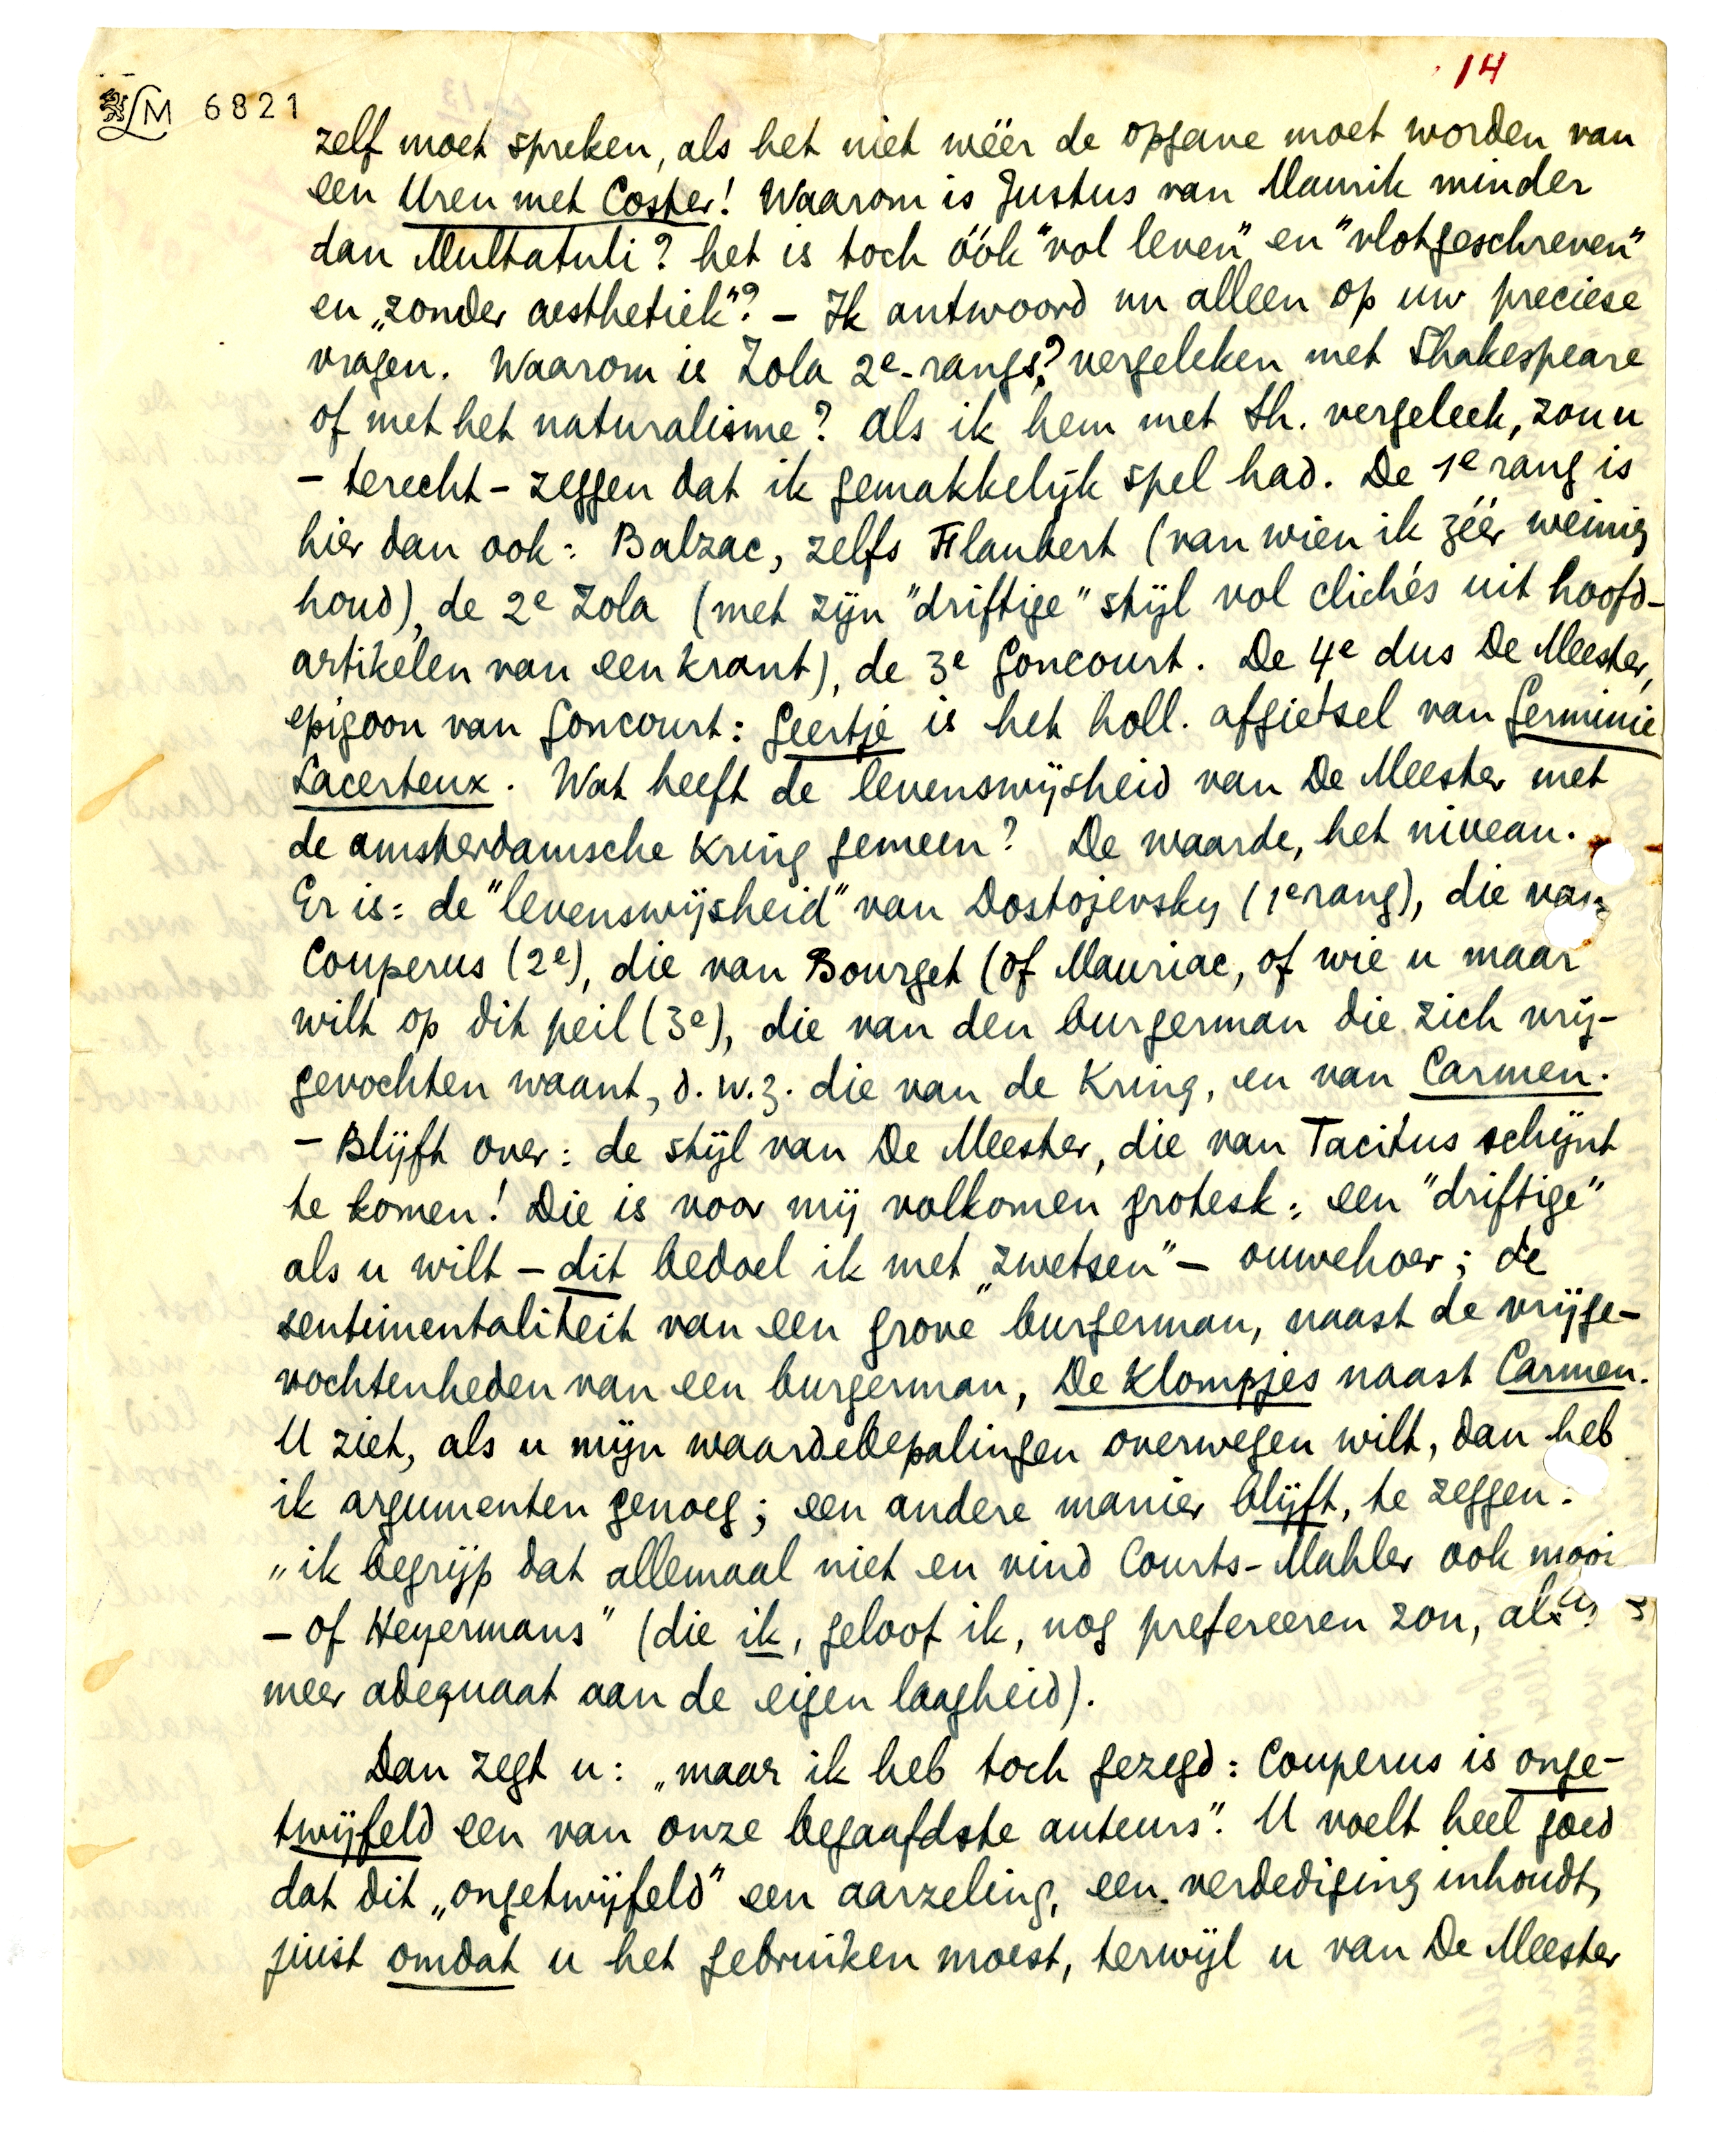 14
LM 6821
zelf moet spreken, als het niet wéér de opgave moet worden van
een Uren met Coster! Waarom is Justus van Maurik minder
dan Multatuli? het is toch óók "vol leven" en "vlotgeschreven"
en „zonder aesthetiek"? – Ik antwoord nu alleen op uw preciese
vragen. Waarom is Zola 2e-rangs? vergeleken met Shakespeare
of met het naturalisme? Als ik hem met Sh. vergeleek, zou u
– terecht – zeggen dat ik gemakkelijk spel had. De 1e rang is
hier dan ook: Balzac, zelfs Flaubert (van wien ik zéér weinig
houd), de 2e Zola (met zijn "driftige" stijl vol clichés uit hoofd-
artikelen van een krant), de 3e Goncourt. De 4e dus De Meester,
epigoon van Goncourt: Geertje is het holl. afgietsel van Germinie
Lacerteux. Wat heeft de levenswijsheid van De Meester met
de amsterdamsche Kring gemeen? De waarde, het niveau.
Er is: de "levenswijsheid" van Dostojevsky (1e rang), die van
Couperus (2e), die van Bourget (of Mauriac, of wie u maar
wilt op dit peil (3e), die van den burgerman die zich vrij-
gevochten waant, d.w.z. die van de Kring, en van Carmen.
– Blijft over: de stijl van De Meester, die van Tacitus schijnt
te komen! Die is voor mij volkomen grotesk: een "driftige"
als u wilt – dit bedoel ik met „zwetsen" – ouwehoer; de
sentimentaliteit van een grove burgerman, naast de vrijge-
vochtenheden van een burgerman, De Klompjes naast Carmen.
U ziet, als u mijn waardebepalingen overwegen wilt, dan heb
ik argumenten genoeg; een andere manier blijft, te zeggen:
„ik begrijp dat allemaal niet en vind Courts-Mahler ook mooi
– of Heyermans" (die ik, geloof ik, nog prefereeren zou, als
meer adequaat aan de eigen laagheid).
Dan zegt u: „maar ik heb toch gezegd: Couperus is onge-
twijfeld een van onze begaafdste auteurs". U voelt heel goed
dat dit „ongetwijfeld" een aarzeling, een verdediging inhoudt,
juist omdat u het gebruiken moest, terwijl u van De Meester